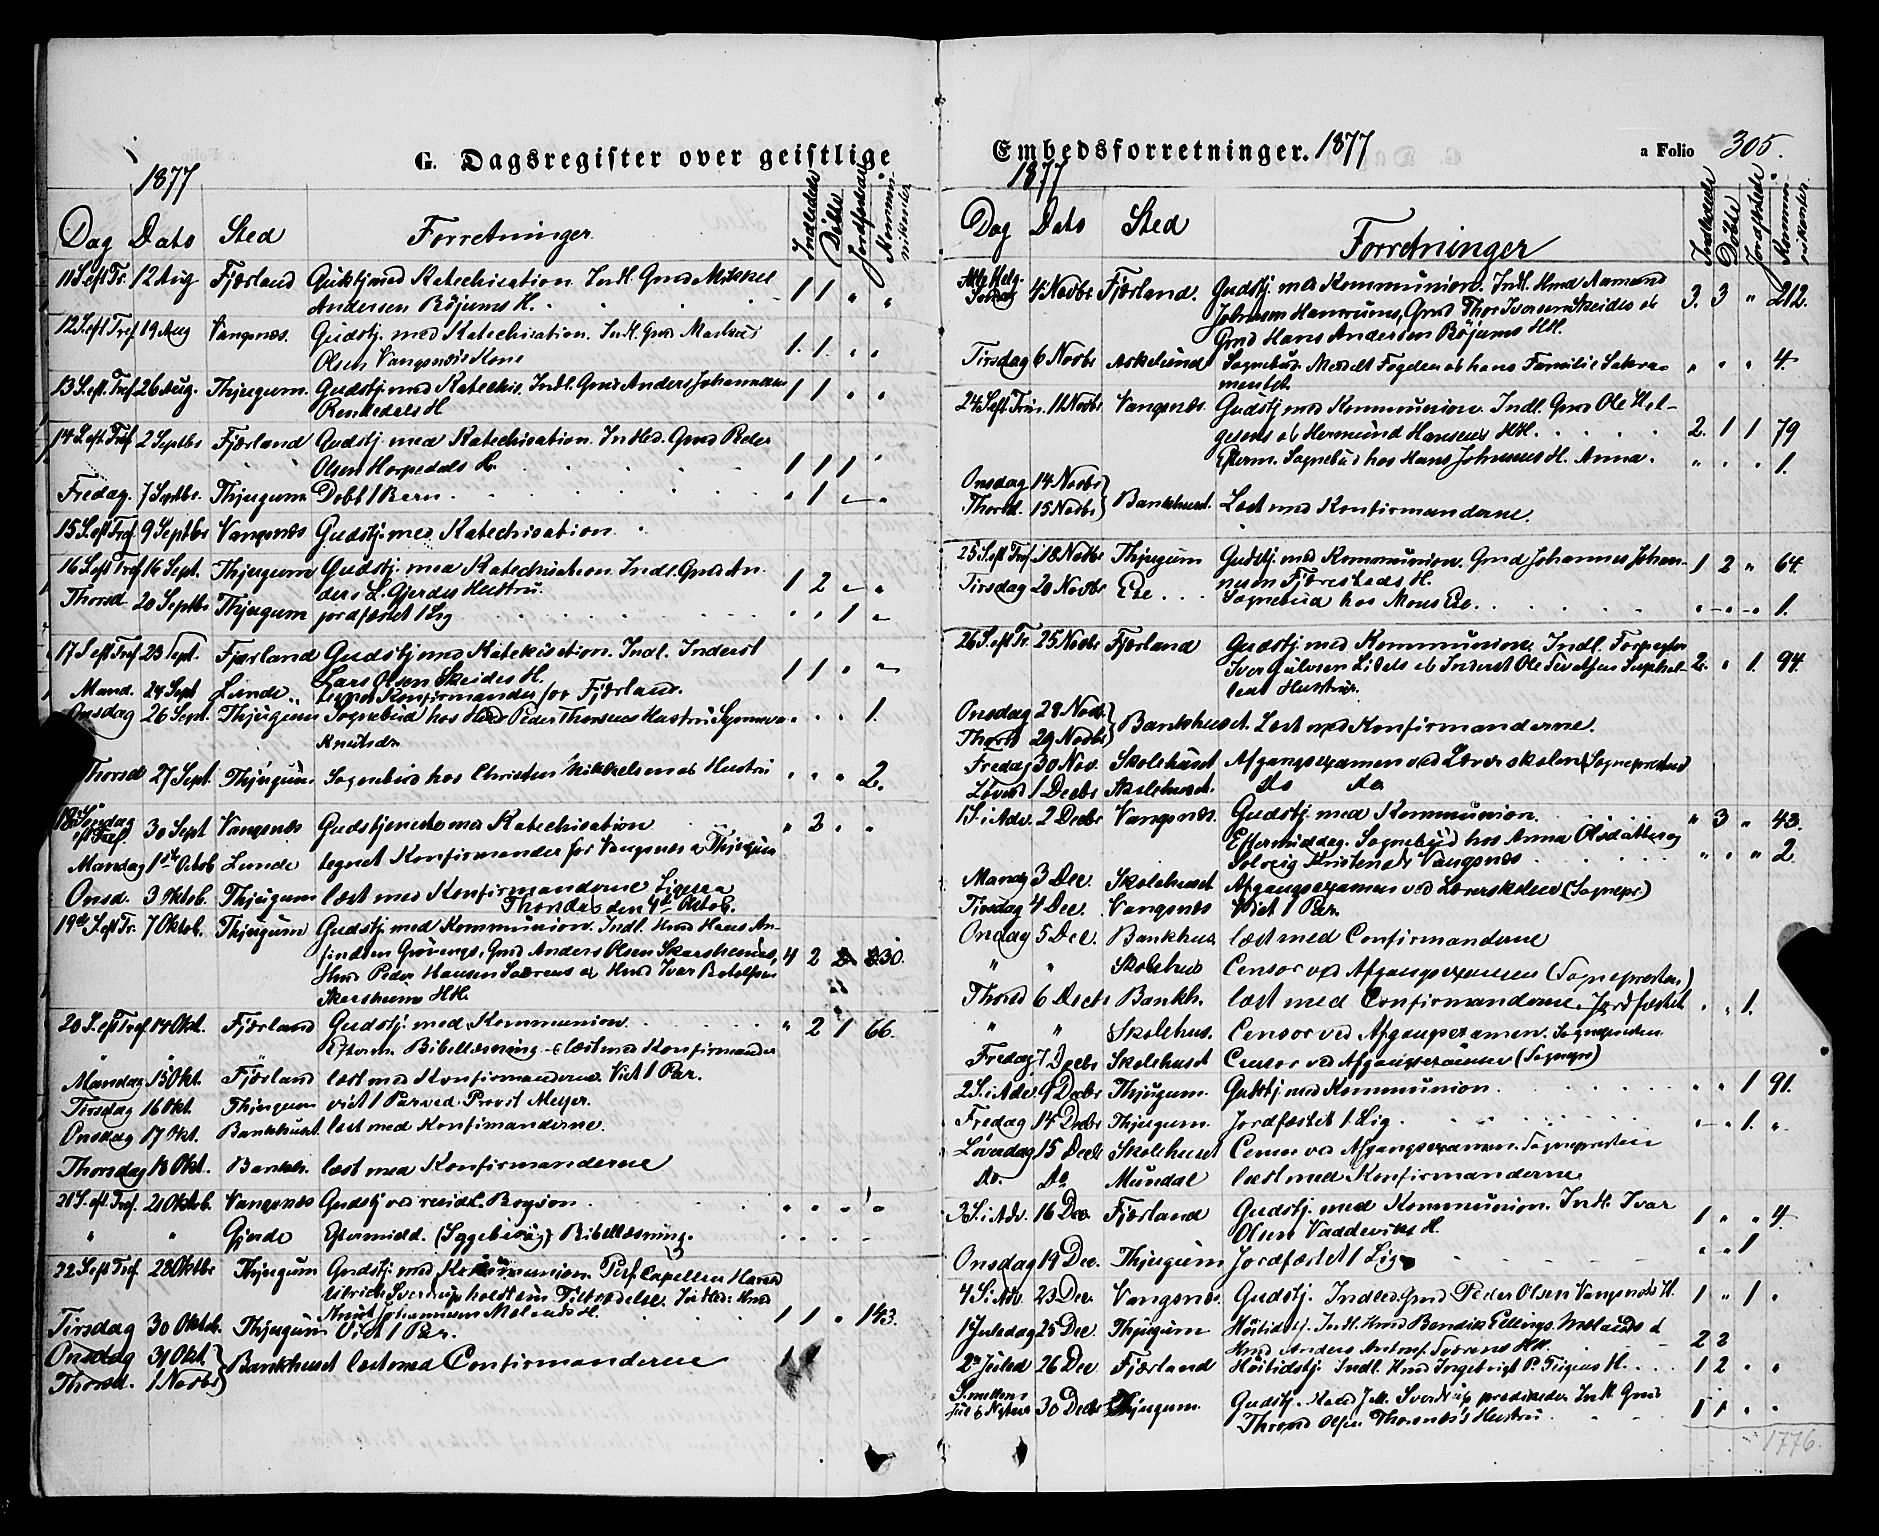 G. Dagsregister over geistlige
1877
Dag Dato Sted Forretninger Indledede Döbte Jordfæstede Kommunikanter
11 S. eft Tr. 12 Aug Fjærland Gudstj med Katechisation. Indl. Gmd Mikkel
Andersen Böjums H. 1 1 " "
12 S. eft Tref 19 Aug Vangsnæs. Gudstj. med Katechisation. Indl. Gmd Markus
Olsen Vangsnæs's Kone 1. 1. " "
13 S. eft. Tref 26 Aug. Thjugum. Gudstj med Katechis. Indl. Gmd Anders Johannesen
Rendedals H 1 1 " "
14 S. eft Tref 2 Septbr Fjærland Gudstj. med Katechisation. Indled. Gmd Peder
Olsen Horpedals H. 1 1 1 "
Fredag. 7 Septbr. Thjugum Döbt 1 Barn " 1 " "
15 S. eft Tref 9 Septbr Vangsnæs Gudstj. med Katechisation
16 S. eft Tref 16 Sept. Thjugum Gudstj. med Katechisation. Indl. Gmd An-
ders L. Gjerdes Hustru. 1 2 " "
Thorsd. 20 Septbr Thjugum jordfæstet 1 Lig " " 1 "
17 S. eft Tref 23 Sept. Fjærland Gudstj med Katekisation. Indl. Inderst
Lars Olsen Skeides H. 1 1 " "
Mand. 24 Sept Lunde. tegnet Konfirmander for Fjærland.
Onsdag 26 Sept. Thjugum Sognebud hos Hmd Peder Thorsens Hustru Synneva
Knutsdr " " " 1.
Thorsd 27 Sept. Thjugum Sognebud hos Christen Mikkelsen ob Hustru " " " 2.
18de Söndag
eft Tref. 30 Sept Vangsnæs Gudstjeneste med Katechisation " 2 " "
Mandag 1ste Octob Lunde tegnet Konfirmander for Vangsnæs & Thjugum
Onsd. 3 Oktob. Thjugum læst med Konfirmanderne Ligesaa
Thorsdag den 4de Oktob.
19de S. eft Tr. 7 Oktob. Thjugum Gudstj. med Kommunion. Indl. Hmd Hans An-
findsen Grövens, Gmd Anders Olsen Skarsheims,
Hmd Peder Hansen Sværens og Hmd Ivar Botolfsen
Skarsheims HH. 4 2 230.
20 S. eft Tref. 14 Okt. Fjærland Gudstj. med Kommunion. " 2 1 66.
Efterm. Bibellæsning & læst med Konfirmander
Mandag 15 Okt. Fjärland læst med Konfirmanderne. Viet 1 Par.
Tirsdag 16 Okt. Thjugum viet 1 Par ved Provst Meyer.
Onsdag 17 Okt. Bankhuset læst med Konfirmanderne.
Thorsdag 18 Okt. Bankh. læst med Konfirmanderne
21 S. eft Tref. 21 Oktob. Vangsnæs Gudstj ved resid. Bogson. " " " "
" " Gjerde Eftermidd. Bibellæsning. " " " "
22 S. eft Tref. 28 Oktbr Thjugum Gudstj. med Kommunion. Pers. Capellan Harald
Ulrich Sverdrup holdt sin Tiltrædelse. Indled: Hmd
Knut Johannesen Melands H. 1 1 " 143.
Tirsdag 30 Oktob. Thjugum Viet 1 Par.
Onsdag 31 Okt.
Thorsd. 1 Novbr Bankhuset læst med Confirmanderne
Embedsforretninger. 1877 a Folio 305.
1877
Dag Dato Sted Forretninger Indledede Döbte Jordfæstede Kommunikanter.
Alle Helg.
Söndag 4 Novbr Fjærland. Gudstj. med Kommunion. Indl. Hmd Aamund
Johnsen Hamrums, Gmd Thor Iversen Skeides ob
Gmd Hans Andersen Böjums HH. 3. 3 " 212.
Tirsdag 6 Novbr Askelund Sognebud. Meddelt Fogden ob hans Familie Sakra-
mentet. " " " 4.
24 S. eft Trin. 11 Novbr Vangsnæs. Gudstj med Kommunion. Indl. Gmd Ole Hel-
gesens ob Hermund Hansens HH. 2. 1 1 79
Efterm. Sognebud hos Hans Johnsens H. Anna. " " " 1.
Onsdag 14 Novbr
Thorsd. 15 Novbr Bankhuset. Læst med Konfirmanderne.
25 S. eft Tref. 18 Novbr Thjugum Gudstj. med Kommunion. Gmd Johannes Johan-
nesen Farestads H. 1 2 " 64.
Tirsdag 20 Novbr Ese Sognebud hos Mons Ese. " " " 1.
26 S. eft Tr. 25 Novbr Fjærland Gudstj. med Kommunion. Indl. Forpagter
Iver Gulvsen Lidals ob Inderst Ole
Hustrur. 2. " 1. 94.
Onsdag 28 Novb.
Thorsd 29 Novbr Bankhuset. Læst med Konfirmanderne.
Fredag 30 Nov. Skolehuset Afgangsexamen ved Lærerskolen (Sognepresten)
Löverd 1 Decbr Skolehuset. do do
1 S. i Adv. 2 Decbr Vangsnæs. Gudstj. med Kommunion. " 3 " 43.
Eftermiddag. Sognebud hos Anna Olsdatter og
Solveig Kristensdr Vangsnæs " " " 2
Mandag 3 Dec. Skolehuset Afgangsexamen ved Lærerskolen (Sognepr.)
Tirsdag 4 Dec. Vangsnæs Viet 1 Par.
Onsdag 5 Dec. Bankhus læst med Confirmanderne
" " Skolehus Censor ved Afgangsexamen (Sognepresten)
Thorsd 6 Decbr Bankh. læst med Confirmanderne. Jordfæstet " " 1.
" " Skolehus. Censor ved Afgangsexamen. Sognepresten
Fredag 7 Decbr Skolehuset Censor ved Afgangsexamen (Sognepr)
2 S. i Adv. 9 Decbr Thjugum. Gudstj med Kommunion " " 1 91.
Fredag 14 Decbr Thjugum. Jordfæstet 1 Lig. " " 1. "
Löverdag 15 Decbr Skolehuset Censor ved Afgangsexamen. Sognepresten
Do. Do Mundal læst med Konfirmanderne
3. S. i Adv. 16 Dec. Fjærland Gudstj. med Kommunion. Indl. Ivar
Olsen Vaddeviks H. 1 " " 4.
Onsdag 19 Dec. Thjugum Jordfæstet 1 Lig. " " 1
4 S. i Adv. 23 Dec. Vangsnæs. Gudstj. Indled. Gmd Peder Olsen Vangsnæs H. 1 " 1 "
1 Juledag 25 Dec. Thjugum Höitidstj. Indl. Hmd Bendik Ellings. Melands &
Hmd Anders Sværens HH. 2 2
2den Juled 26 Dec Fjærland Höitidstj. Indl. Hmd Ingebrigt P. Teigens H. 1 2 " "
S. mellem
Jul & Nytaar 30 Decbr Thjugum. Gudstj. Sverdrup prædikede. Indl. Gmd
Thrond Olsen Thorsnæs's Hustru 1 1 " "
1776.